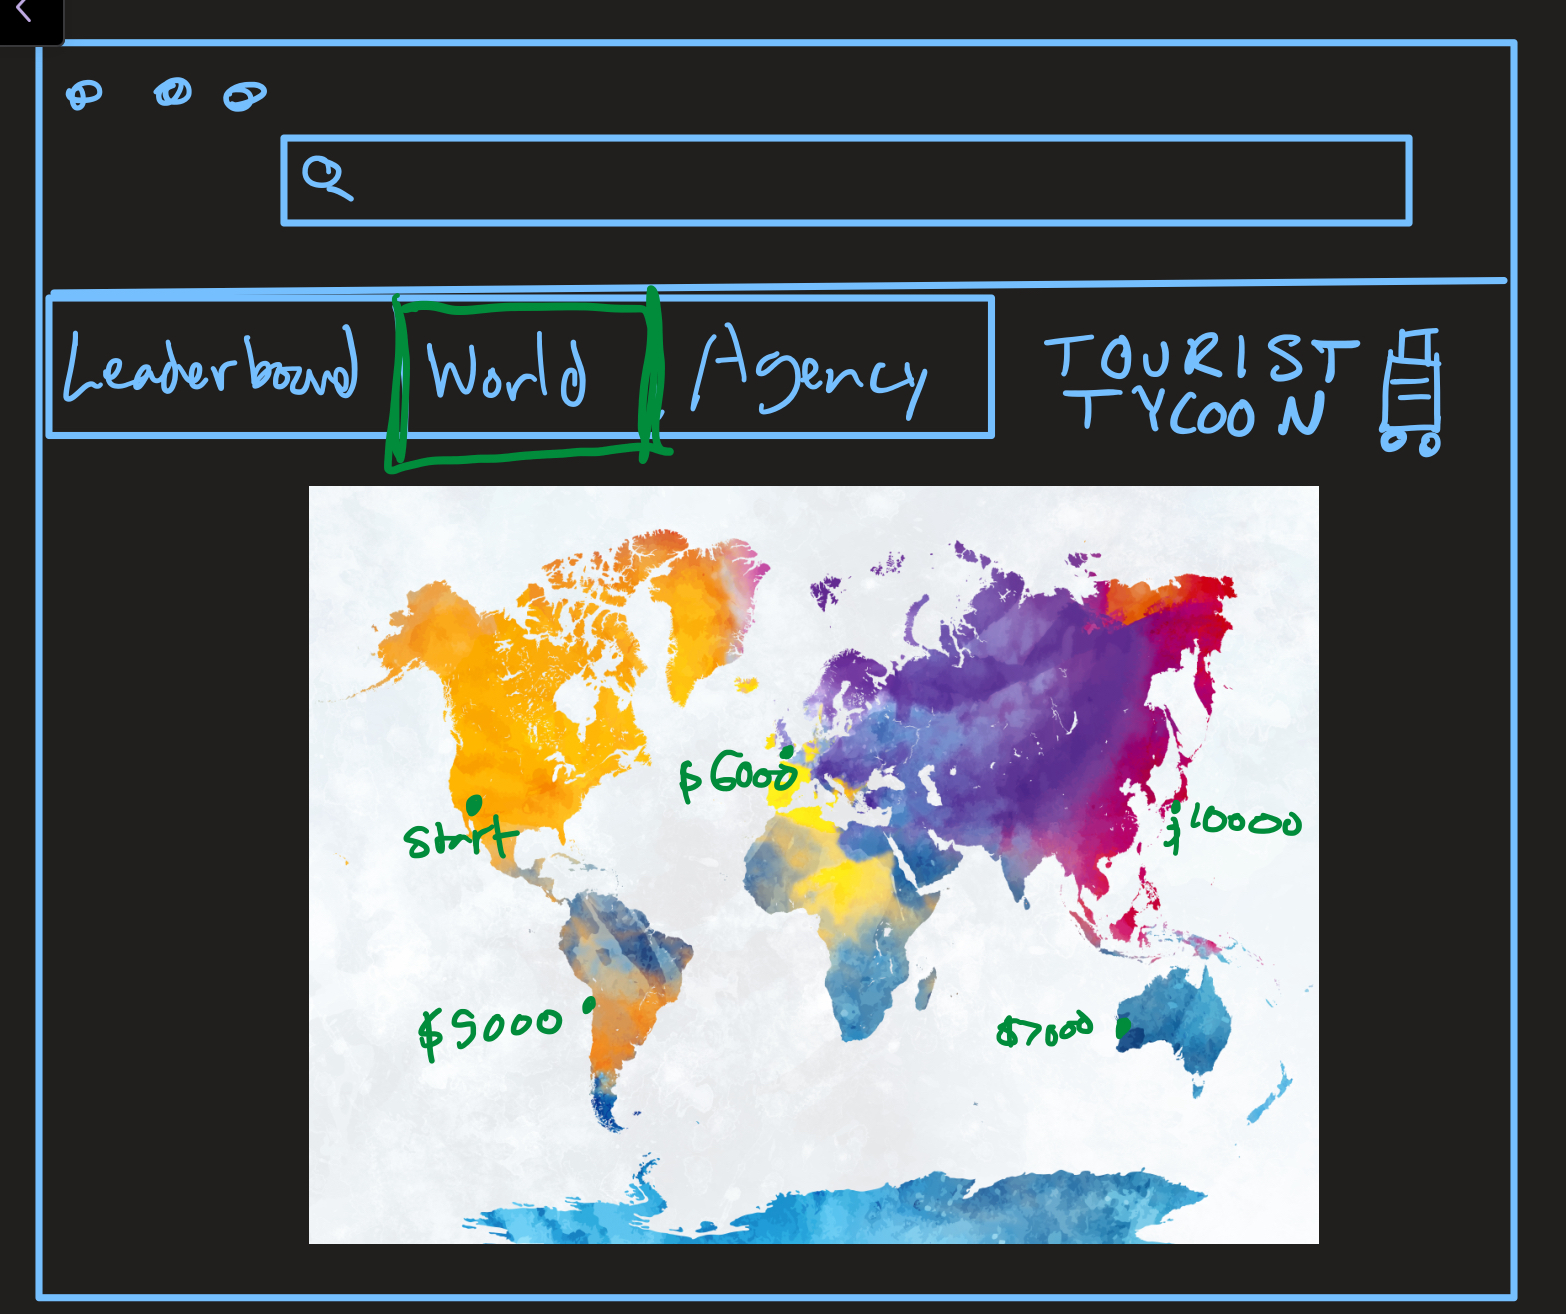 Leaderboard World Agency
TOURIST
TYCOON
$6000
Start
$10000
$5000
$7000